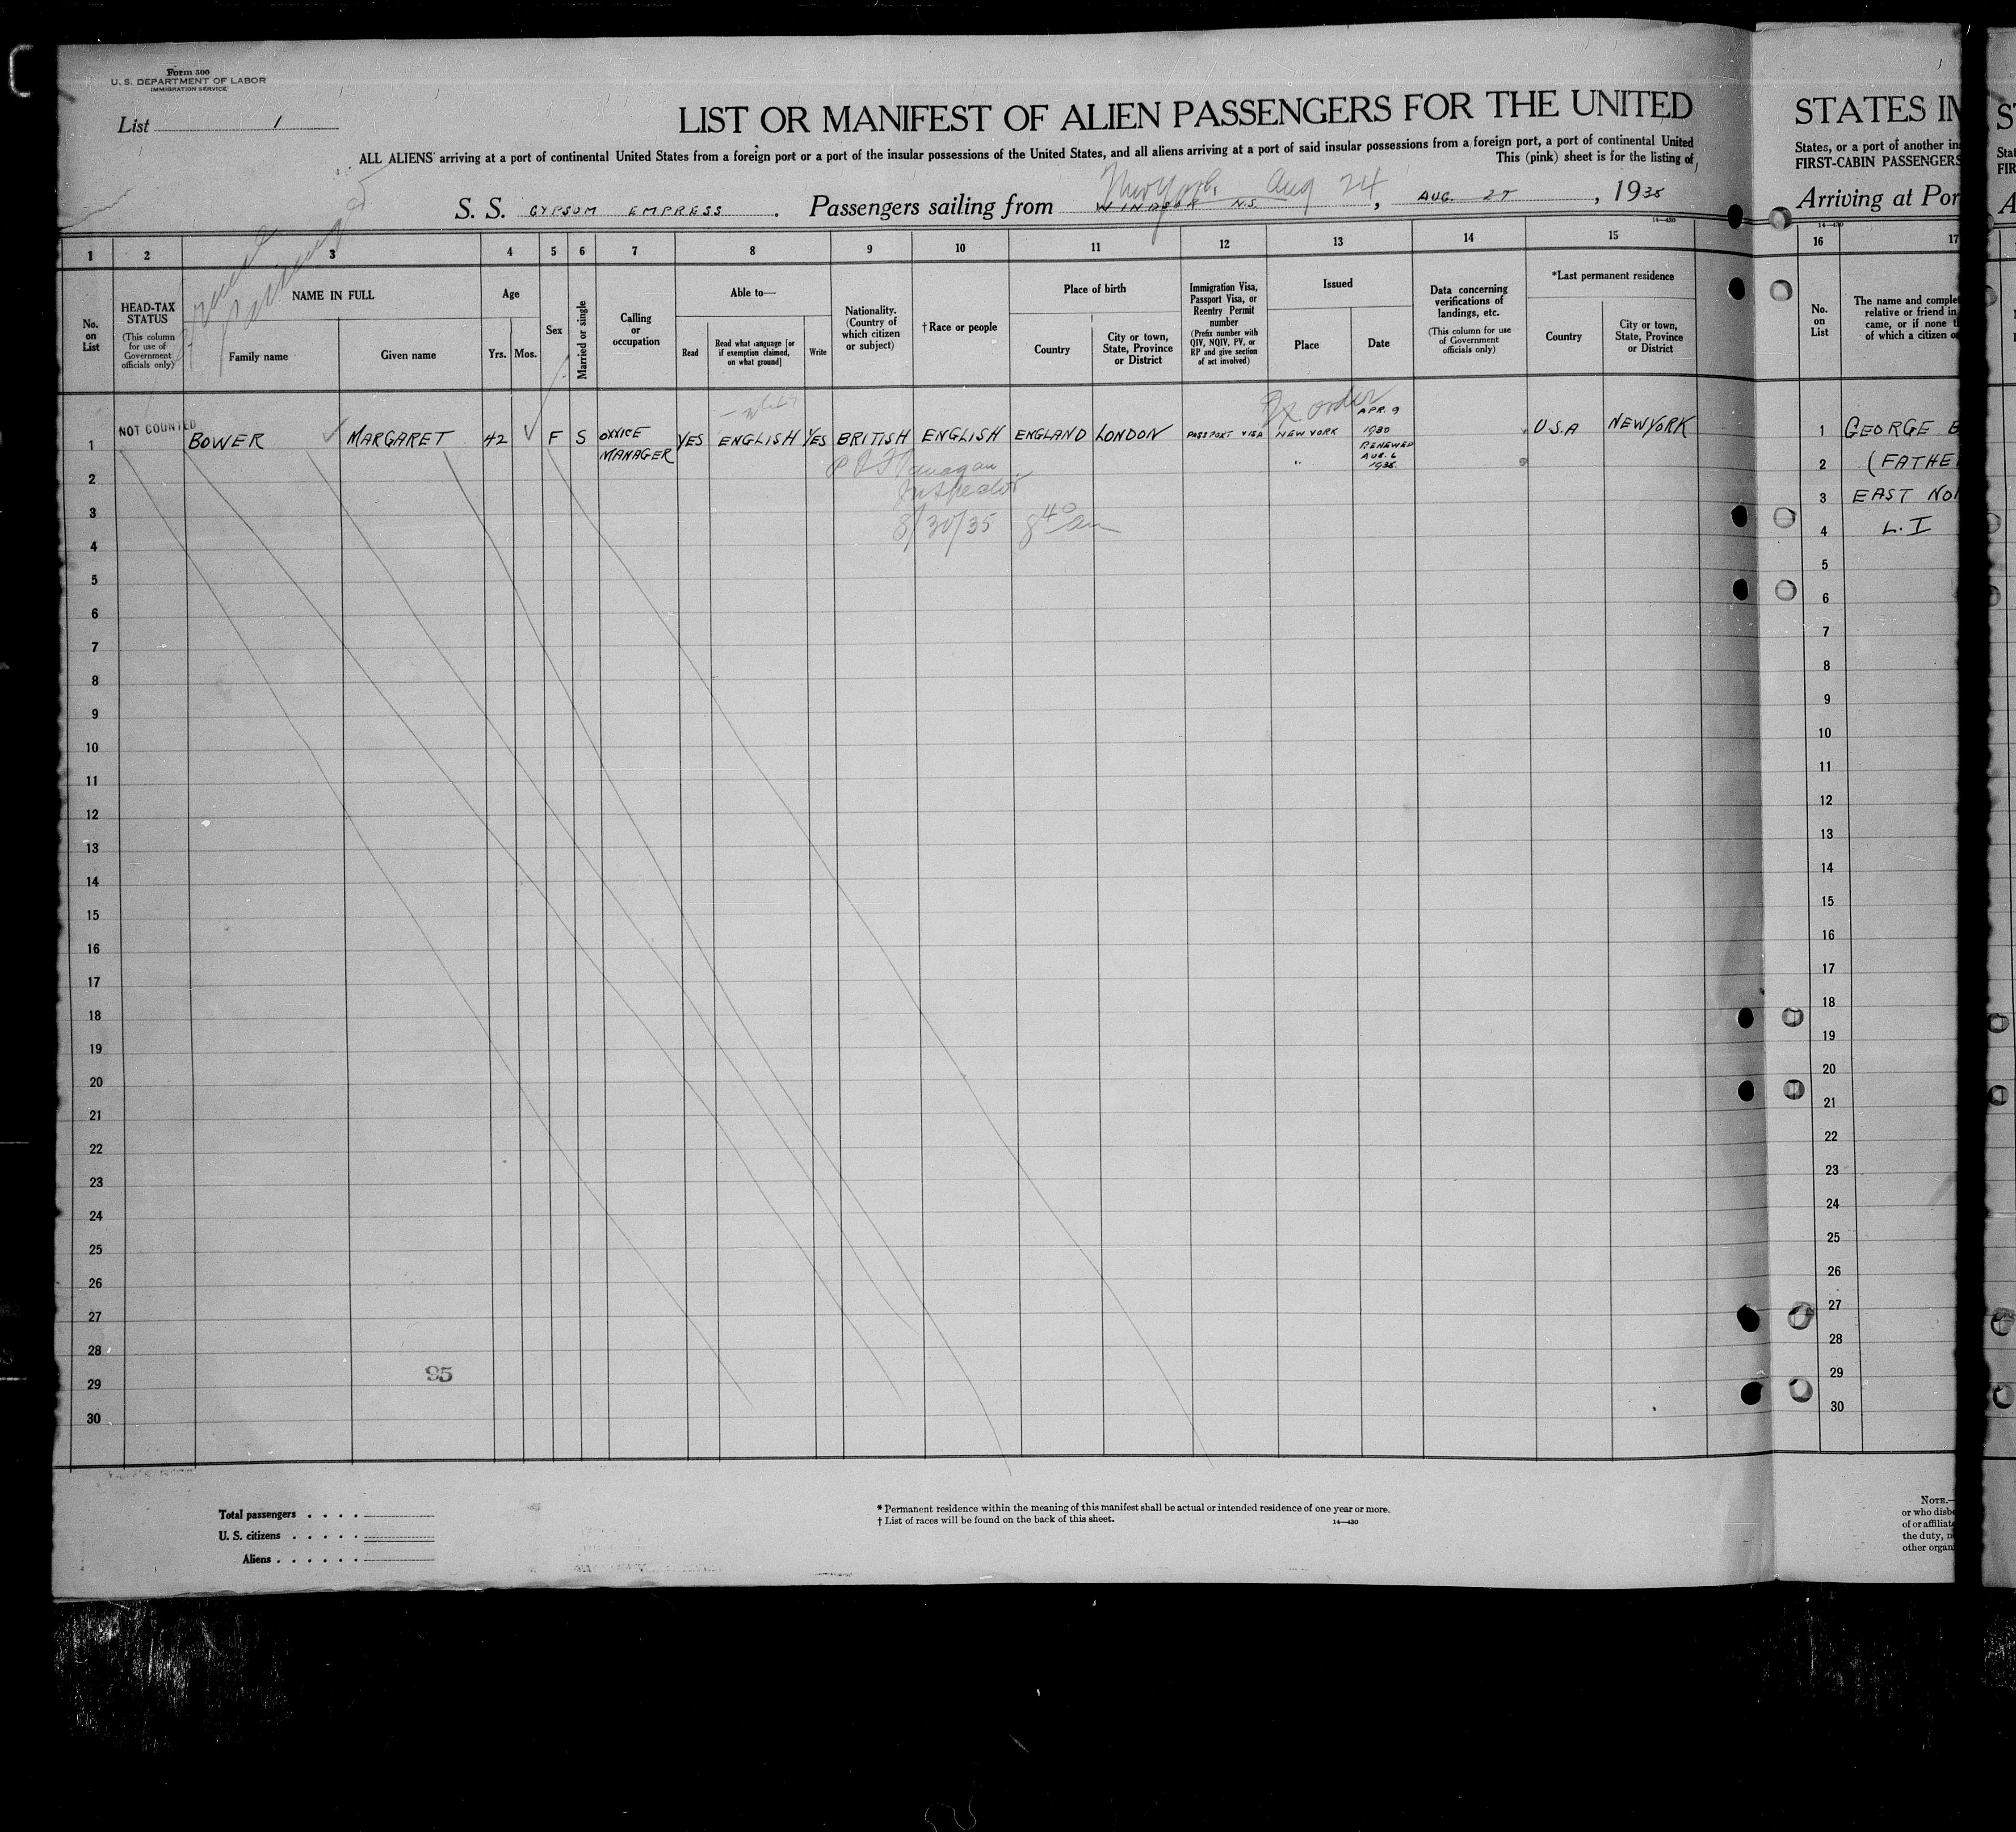 Form 500
U. S. DEPARTMENT OF LABOR
IMMIGRATION SERVICE
List 1
LIST OR MANIFEST OF ALIEN PASSENGERS FOR THE UNITED
ALL ALIENS arriving at a port of continental United States from a foreign port or a port of the insular possessions of the United States, and all aliens arriving at a port of said insular possessions from a foreign port, a port of continental United
This (pink) sheet is for the listing of
New York, Aug 24
S. S. GYPSUM EMPRESS. Passengers sailing from WINDSOR N.S., AUG. 27, 1935
14—430
1 2 3 4 5 6 7 8 9 10 11 12 13 14 15
No. on List
HEAD-TAX STATUS
(This column for use of Government officials only)
NAME IN FULL
Family name
Given name
Age
Yrs. Mos.
Sex
Married or single
Calling or occupation
Able to—
Read
Read what language [or if exemption claimed, on what ground]
Write
Nationality. (Country of which citizen or subject)
† Race or people
Place of birth
Country
City or town, State, Province or District
Immigration Visa, Passport Visa, or Reentry Permit number
(Prefix number with QIV, NQIV, PV, or RP and give section of act involved)
Issued
Place
Date
Data concerning verifications of landings, etc.
(This column for use of Government officials only)
*Last permanent residence
Country
City or town, State, Province or District
Ex order
1 NOT COUNTED BOWER MARGARET 42 F S OFFICE MANAGER YES ENGLISH YES BRITISH ENGLISH ENGLAND LONDON PASSPORT VISA NEW YORK APR. 9 1930 RENEWED AUG. 6 1935. U.S.A NEW YORK
Flanagan
Inspector
8/30/35 8 40 am
2
3
4
5
6
7
8
9
10
11
12
13
14
15
16
17
18
19
20
21
22
23
24
25
26
27
28
29
30
95
Total passengers
U. S. citizens
Aliens
* Permanent residence within the meaning of this manifest shall be actual or intended residence of one year or more.
† List of races will be found on the back of this sheet.
14—430
STATES IN
States, or a port of another in
FIRST-CABIN PASSENGERS
Arriving at Por
14—430
16 17
No. on List
The name and comple
relative or friend in
came, or if none t
of which a citizen o
1 GEORGE B
2 (FATHE
3 EAST NO
4 L. I
5
6
7
8
9
10
11
12
13
14
15
16
17
18
19
20
21
22
23
24
25
26
27
28
29
30
NOTE.—
or who disb
of or affiliat
the duty, n
other organ